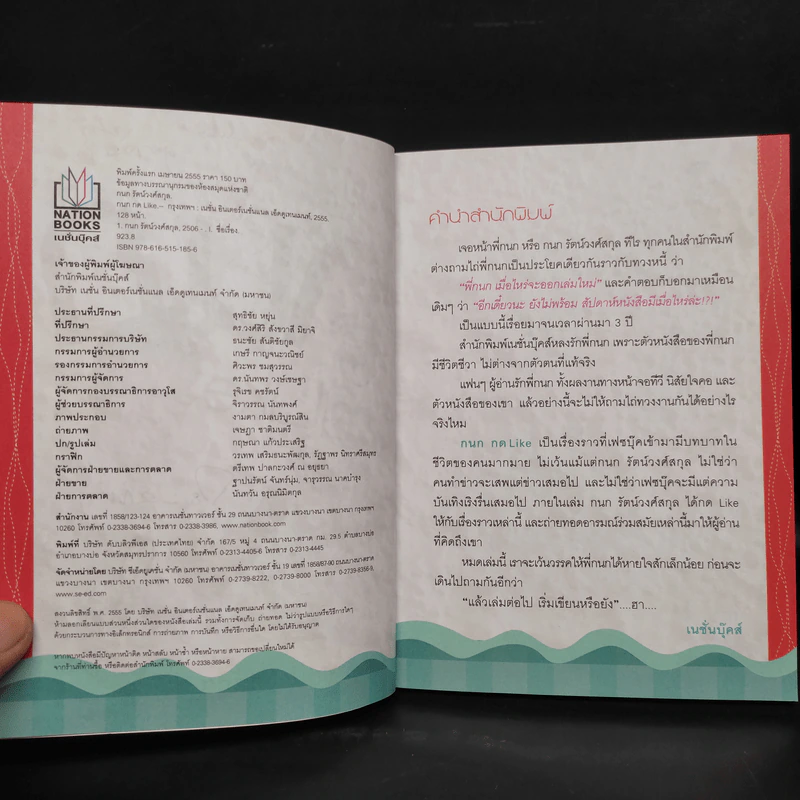 NATION
BOOKS
เนชั่นบุ๊คส์
พิมพ์ครั้งแรก เมษายน 2555 ราคา 150 บาท
ข้อมูลทางบรรณานุกรมของห้องสมุดแห่งชาติ
กนก รัตน์วงศ์สกุล.
กนก กด Like.-- กรุงเทพฯ : เนชั่น อินเตอร์เนชั่นแนล เอ็ดดูเทนเมนท์, 2555.
128 หน้า.
1. กนก รัตน์วงศ์สกุล, 2506- . I. ชื่อเรื่อง.
923.8
ISBN 978-616-515-185-6
เจ้าของผู้พิมพ์ผู้โฆษณา
สำนักพิมพ์เนชั่นบุ๊คส์
บริษัท เนชั่น อินเตอร์เนชั่นแนล เอ็ดดูเทนเมนท์ จำกัด (มหาชน)
ประธานที่ปรึกษา สุทธิชัย หยุ่น
ที่ปรึกษา ดร.วงศ์ศิริ สังขวาสี มิยาจิ
ประธานกรรมการบริษัท ธนะชัย สันติชัยกูล
กรรมการผู้อำนวยการ เกษรี กาญจนะวณิชย์
รองกรรมการอำนวยการ ศิวะพร ชมสุวรรณ
กรรมการผู้จัดการ ดร.นันทพร วงษ์เชษฐา
ผู้จัดการกองบรรณาธิการอาวุโส รุจิเรข คชรัตน์
ผู้ช่วยบรรณาธิการ จิราวรรณ นันทพงศ์
ภาพประกอบ งามตา กมลบริบูรณ์สิน
ถ่ายภาพ เจษฎา ชาติมนตรี
ปก/รูปเล่ม กฤษณา แก้วประเสริฐ
กราฟิก วรเทพ เสริมธนะพัฒกุล, รัฏฐาพร นิทราศรีสมุทร
ผู้จัดการฝ่ายขายและการตลาด ตรีเทพ ปาลกะวงศ์ ณ อยุธยา
ฝ่ายขาย ฐาปนรัตน์ จันทร์นุ่ม, จารุวรรณ นาคบำรุง
ฝ่ายการตลาด นันทวัน อรุณนิมิตกุล
สำนักงาน เลขที่ 1858/123-124 อาคารเนชั่นทาวเวอร์ ชั้น 29 ถนนบางนา-ตราด แขวงบางนา เขตบางนา กรุงเทพฯ
10260 โทรศัพท์ 0-2338-3694-6 โทรสาร 0-2338-3986, www.nationbook.com
พิมพ์ที่ บริษัท ดับบลิวพีเอส (ประเทศไทย) จำกัด 167/5 หมู่ 4 ถนนบางนา-ตราด กม. 29.5 ตำบลบางบ่อ
อำเภอบางบ่อ จังหวัดสมุทรปราการ 10560 โทรศัพท์ 0-2313-4405-6 โทรสาร 0-2313-4445
จัดจำหน่ายโดย บริษัท ซีเอ็ดยูเคชั่น จำกัด (มหาชน) อาคารเนชั่นทาวเวอร์ ชั้น 19 เลขที่ 1858/87-90 ถนนบางนา-ตราด
แขวงบางนา เขตบางนา กรุงเทพฯ 10260 โทรศัพท์ 0-2739-8222, 0-2739-8000 โทรสาร 0-2739-8356-9,
www.se-ed.com
สงวนลิขสิทธิ์ พ.ศ. 2555 โดย บริษัท เนชั่น อินเตอร์เนชั่นแนล เอ็ดดูเทนเมนท์ จำกัด (มหาชน)
ห้ามลอกเลียนแบบส่วนหนึ่งส่วนใดของหนังสือเล่มนี้ รวมทั้งการจัดเก็บ ถ่ายทอด ไม่ว่ารูปแบบหรือวิธีการใดๆ
ด้วยกระบวนการทางอิเล็กทรอนิกส์ การถ่ายภาพ การบันทึก หรือวิธีการอื่นใด โดยไม่ได้รับอนุญาต
หากพบหนังสือมีปัญหาหน้าติด หน้าสลับ หน้าซ้ำ หรือหน้าหาย สามารถขอเปลี่ยนใหม่ได้
จากร้านที่ท่านซื้อ หรือติดต่อสำนักพิมพ์ โทรศัพท์ 0-2338-3694-6
คำนำสำนักพิมพ์
เจอหน้าพี่กนก หรือ กนก รัตน์วงศ์สกุล ทีไร ทุกคนในสำนักพิมพ์
ต่างถามไถ่พี่กนกเป็นประโยคเดียวกันราวกับทวงหนี้ ว่า
“พี่กนก เมื่อไหร่จะออกเล่มใหม่” และคำตอบก็บอกมาเหมือน
เดิมๆ ว่า “อีกเดี๋ยวนะ ยังไม่พร้อม สัปดาห์หนังสือมีเมื่อไหร่ล่ะ!?!”
เป็นแบบนี้เรื่อยมาจนเวลาผ่านมา 3 ปี
สำนักพิมพ์เนชั่นบุ๊คส์หลงรักพี่กนก เพราะตัวหนังสือของพี่กนก
มีชีวิตชีวา ไม่ต่างจากตัวตนที่แท้จริง
แฟนๆ ผู้อ่านรักพี่กนก ทั้งผลงานทางหน้าจอทีวี นิสัยใจคอ และ
ตัวหนังสือของเขา แล้วอย่างนี้จะไม่ให้ถามไถ่ทวงงานกันได้อย่างไร
จริงไหม
กนก กด Like เป็นเรื่องราวที่เฟซบุ๊คเข้ามามีบทบาทใน
ชีวิตของคนมากมาย ไม่เว้นแม้แต่กนก รัตน์วงศ์สกุล ไม่ใช่ว่า
คนทำข่าวจะเสพแต่ข่าวเสมอไป และไม่ใช่ว่าเฟซบุ๊คจะมีแต่ความ
บันเทิงเริงรื่นเสมอไป ภายในเล่ม กนก รัตน์วงศ์สกุล ได้กด Like
ให้กับเรื่องราวเหล่านี้ และถ่ายทอดอารมณ์ร่วมสมัยเหล่านี้มาให้ผู้อ่าน
ที่คิดถึงเขา
หมดเล่มนี้ เราจะเว้นวรรคให้พี่กนกได้หายใจสักเล็กน้อย ก่อนจะ
เดินไปถามกันอีกว่า
“แล้วเล่มต่อไป เริ่มเขียนหรือยัง”....ฮา....
เนชั่นบุ๊คส์